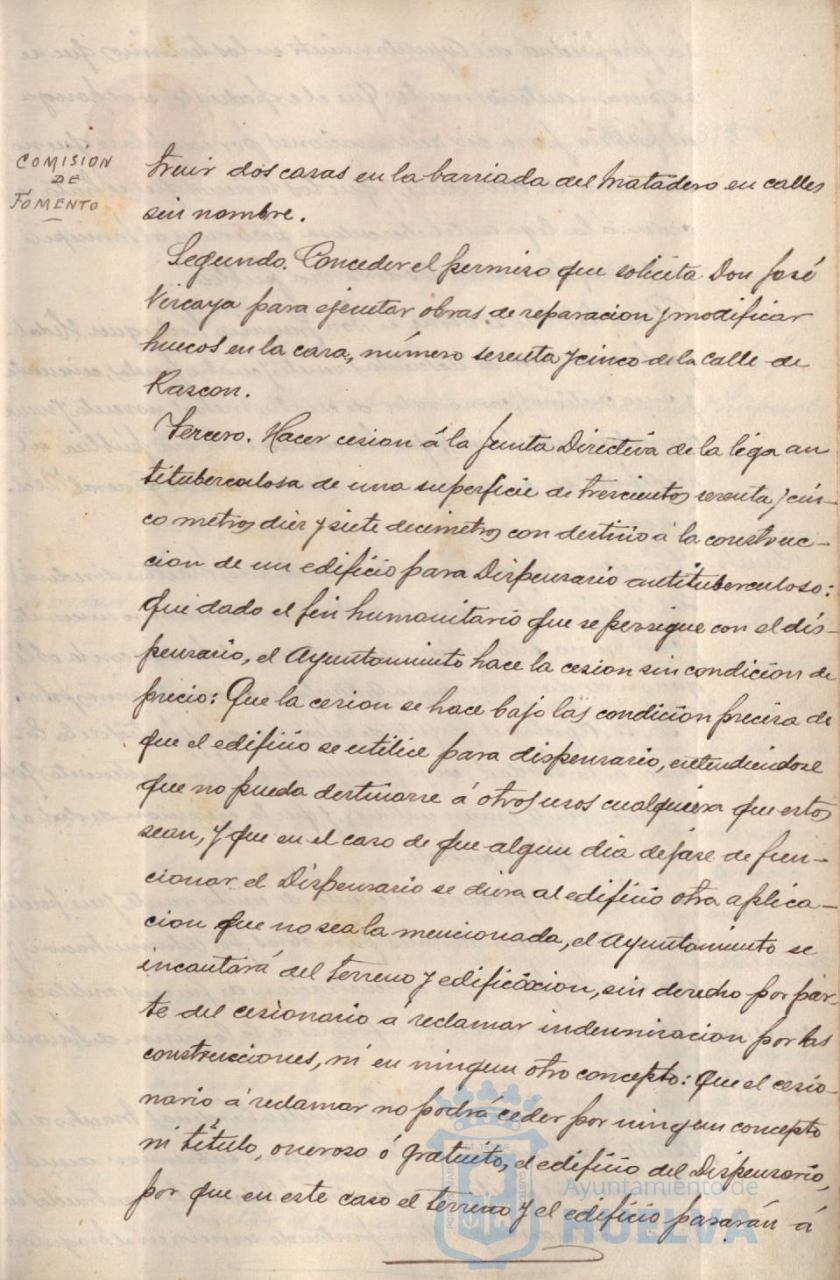 COMISION
DE
FOMENTO
truir dos casas en la barriada del Matadero en calles
sin nombre.
Segundo. Conceder el permiso que solicita Don José
Vizcaya para ejecutar obras de reparacion y modificar
huecos en la casa, número sesenta y cinco de la calle de
Rascon.
Tercero. Hacer cesion á la Junta Directiva de la liga an
tituberculosa de una superficie de trescientos sesenta y cin-
co metros diez y siete decimetros con destino á la construc-
cion de un edificio para Dispensario antituberculoso:
Que dado el fin humanitario que se persigue con el dis-
pensario, el Ayuntamiento hace la cesion sin condicion de
precio: Que la cesion se hace bajo las condicion precisa de
que el edificio se utilice para dispensario, entendiendose
que no pueda destinarse á otros usos cualquiera que estos
sean, y que en el caso de que algun dia dejase de fun-
cionar el Dispensario se diera al edificio otra aplica-
cion que no sea la mencionada, el Ayuntamiento se
incautará del terreno y edificacion, sin derecho por par-
te del cesionario a reclamar indemnizacion por las
construcciones, ni en ningun otro concepto: Que el cesio-
nario á reclamar no podrá ceder por ningun concepto
ni título, oneroso ó gratuito, el edificio del Dispensario,
por que en este caso el terreno y el edificio pasarán á
Ayuntamiento de
HUELVA